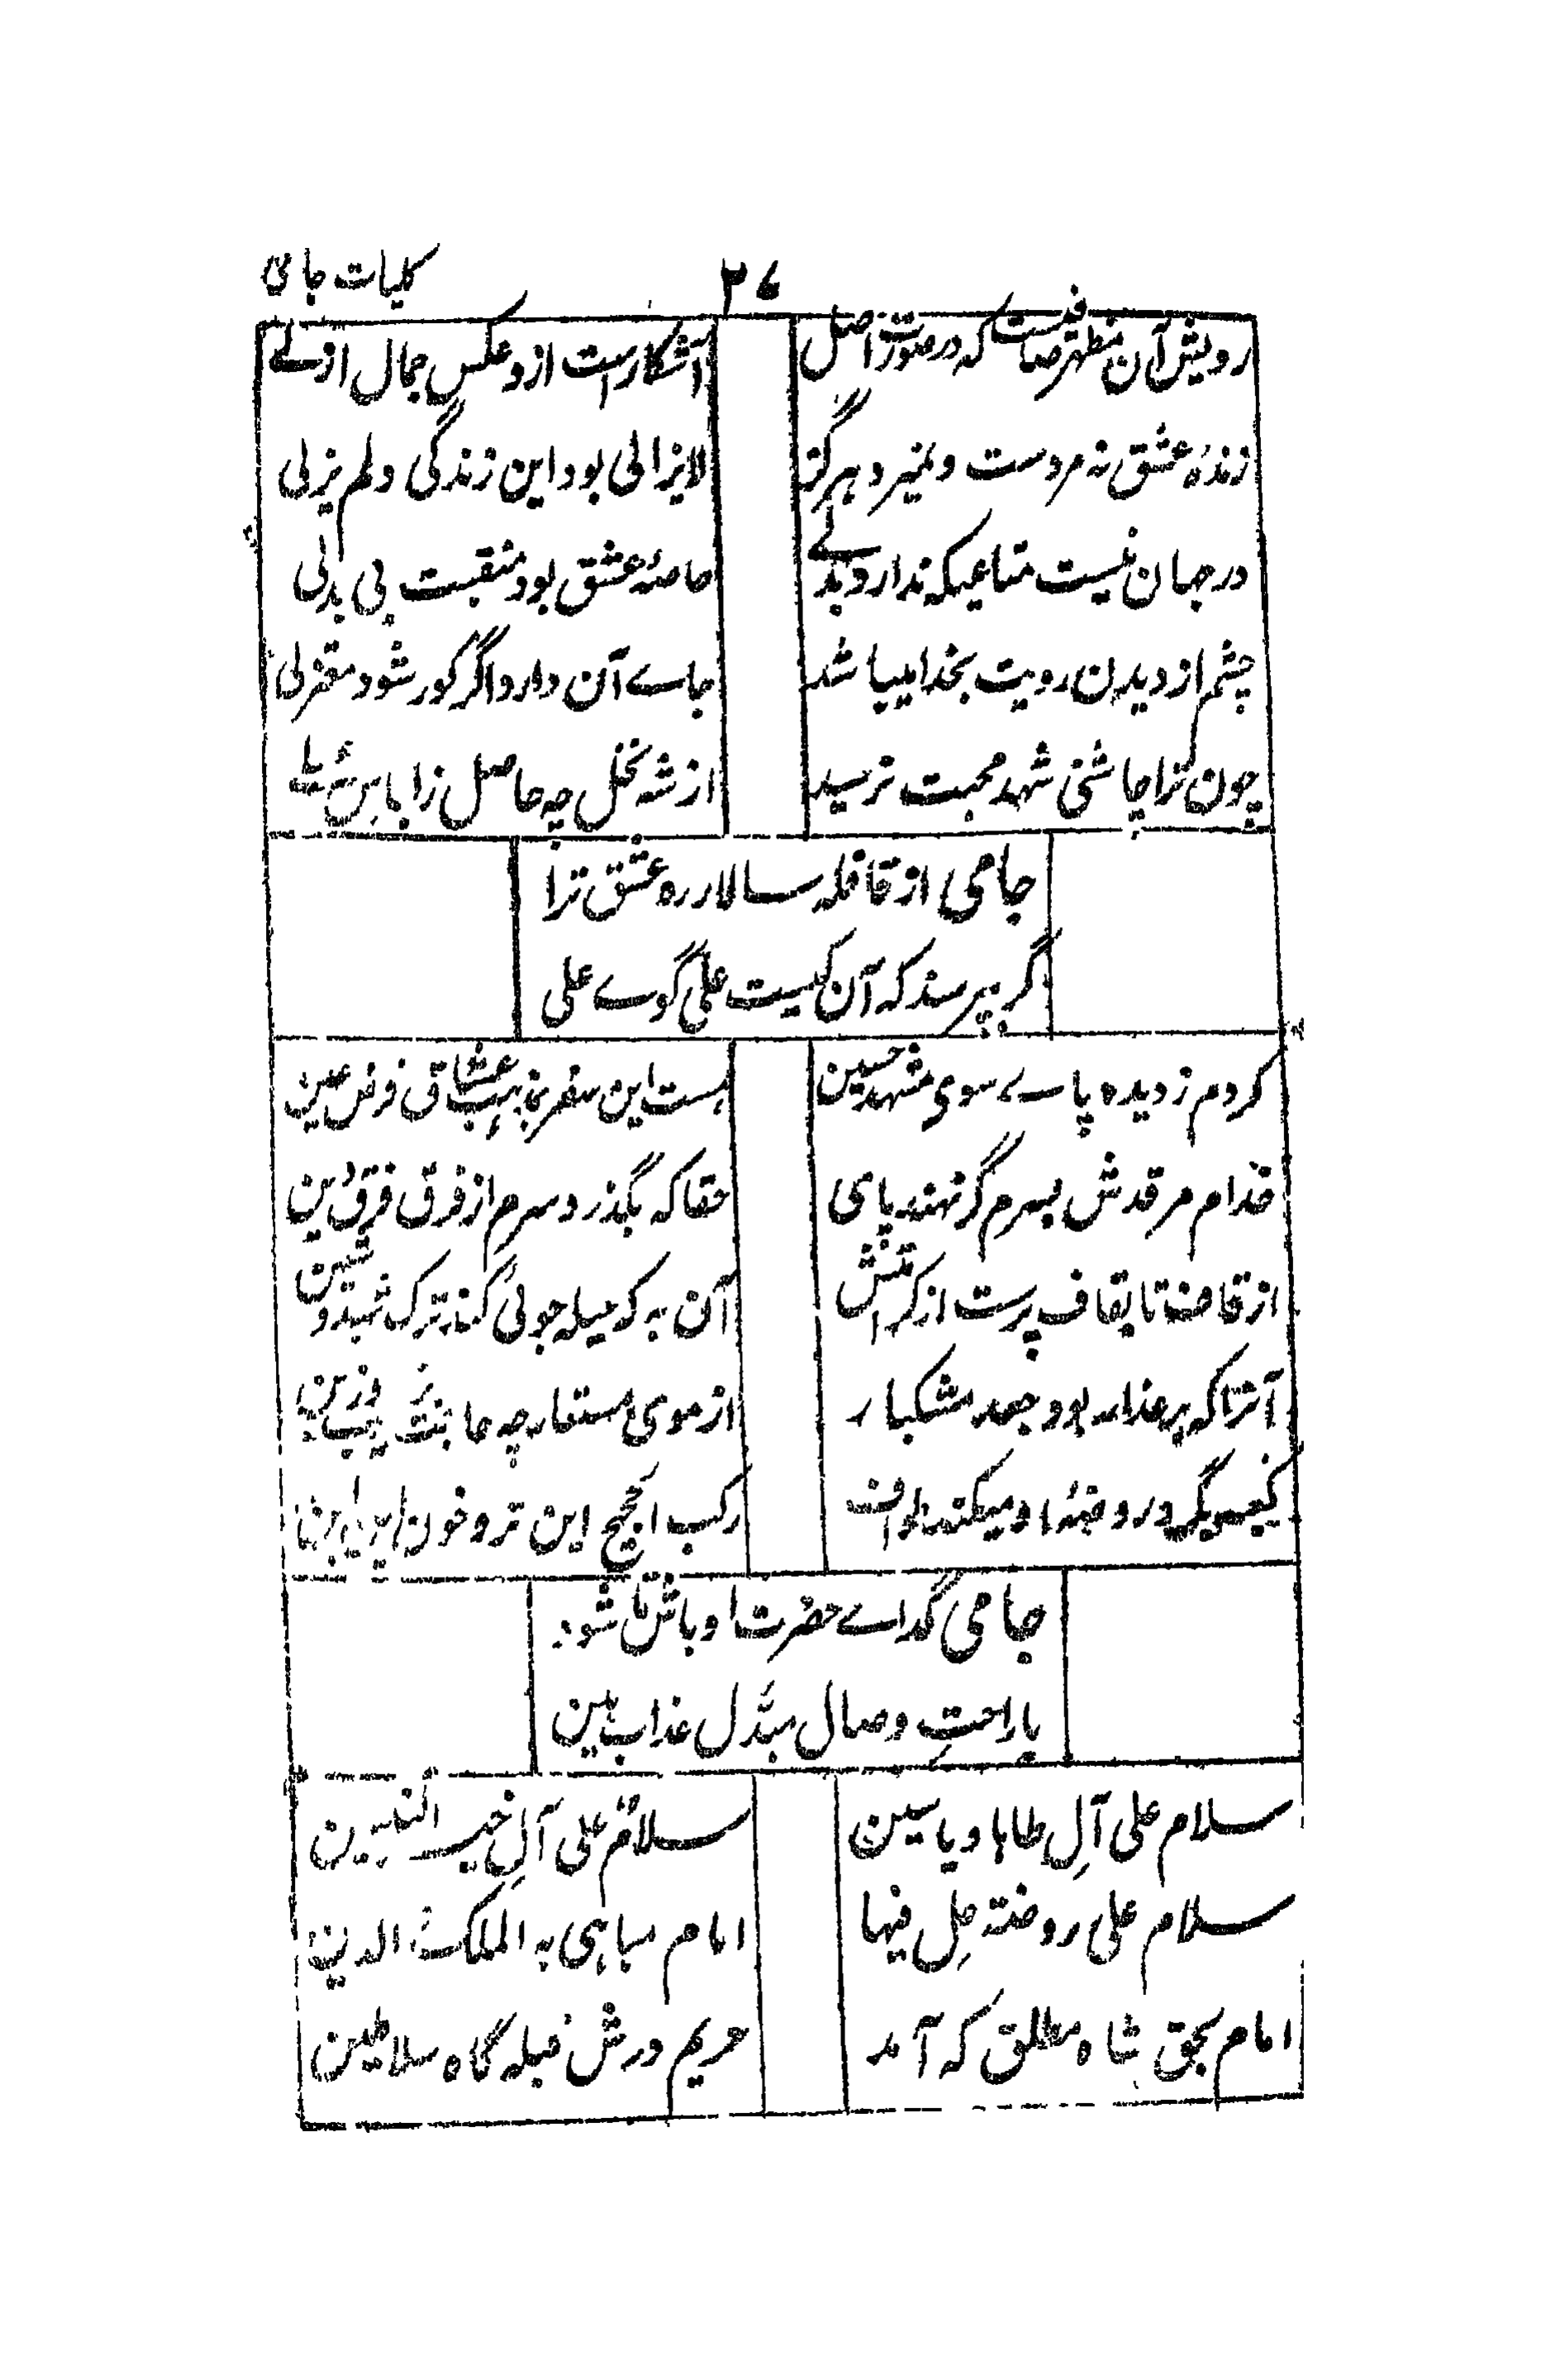 کلیات جامی
۲۷
رویش آن مظهر صافیست که در صورت اصل
آشکار است ازو عکس جمال ازلے
زندۂ عشق نه مردست و نمیرد هرگز
لایزالی بود این زندگی و لم یزلی
در جهان نیست متاعیکه ندارد بدلے
خاصۂ عشق بود منقبت بی بدلی
چشم از دیدن رویت بخدا میباشد
جاے آن دارد اگر کور شود معتزلی
چون ترا چاشنی شهد محبت نرسید
از شه نحل چه حاصل ز لباس عسلے
جامی از قافله سالار ره عشق ترا
گر بپرسند که آن کیست علی گوے علی
کردم ز دیده پاے سوی مشهد حسین
هست این سفر بمذهب عشاق فرض عین
خدام مرقدش بسرم گر نهند پای
حقا که بگذرد سرم از فرق فرقدین
از قاف تا بقاف پرست از کرامتش
آن به که حیله جوئی کند ترک شید و شین
آنرا که بر عذار بود جعد مشکبار
از موی مستعار چه حاجت بزیب و زین
کعبه بگرد روضۂ او میکند طواف
رکب الحجیج این تروحون این این
جامی گداے حضرت او باش تا شود
با راحت وصال مبدّل عذاب بین
سلام علی آلِ طاها و یاسین
سلامٌ علی آلِ خیر النبیین
سلام علی روضة حِل فیها
امام مباهی به الملک الدین
امام بحق شاه مطلق که آمد
حریم درش قبله گاه سلاطین